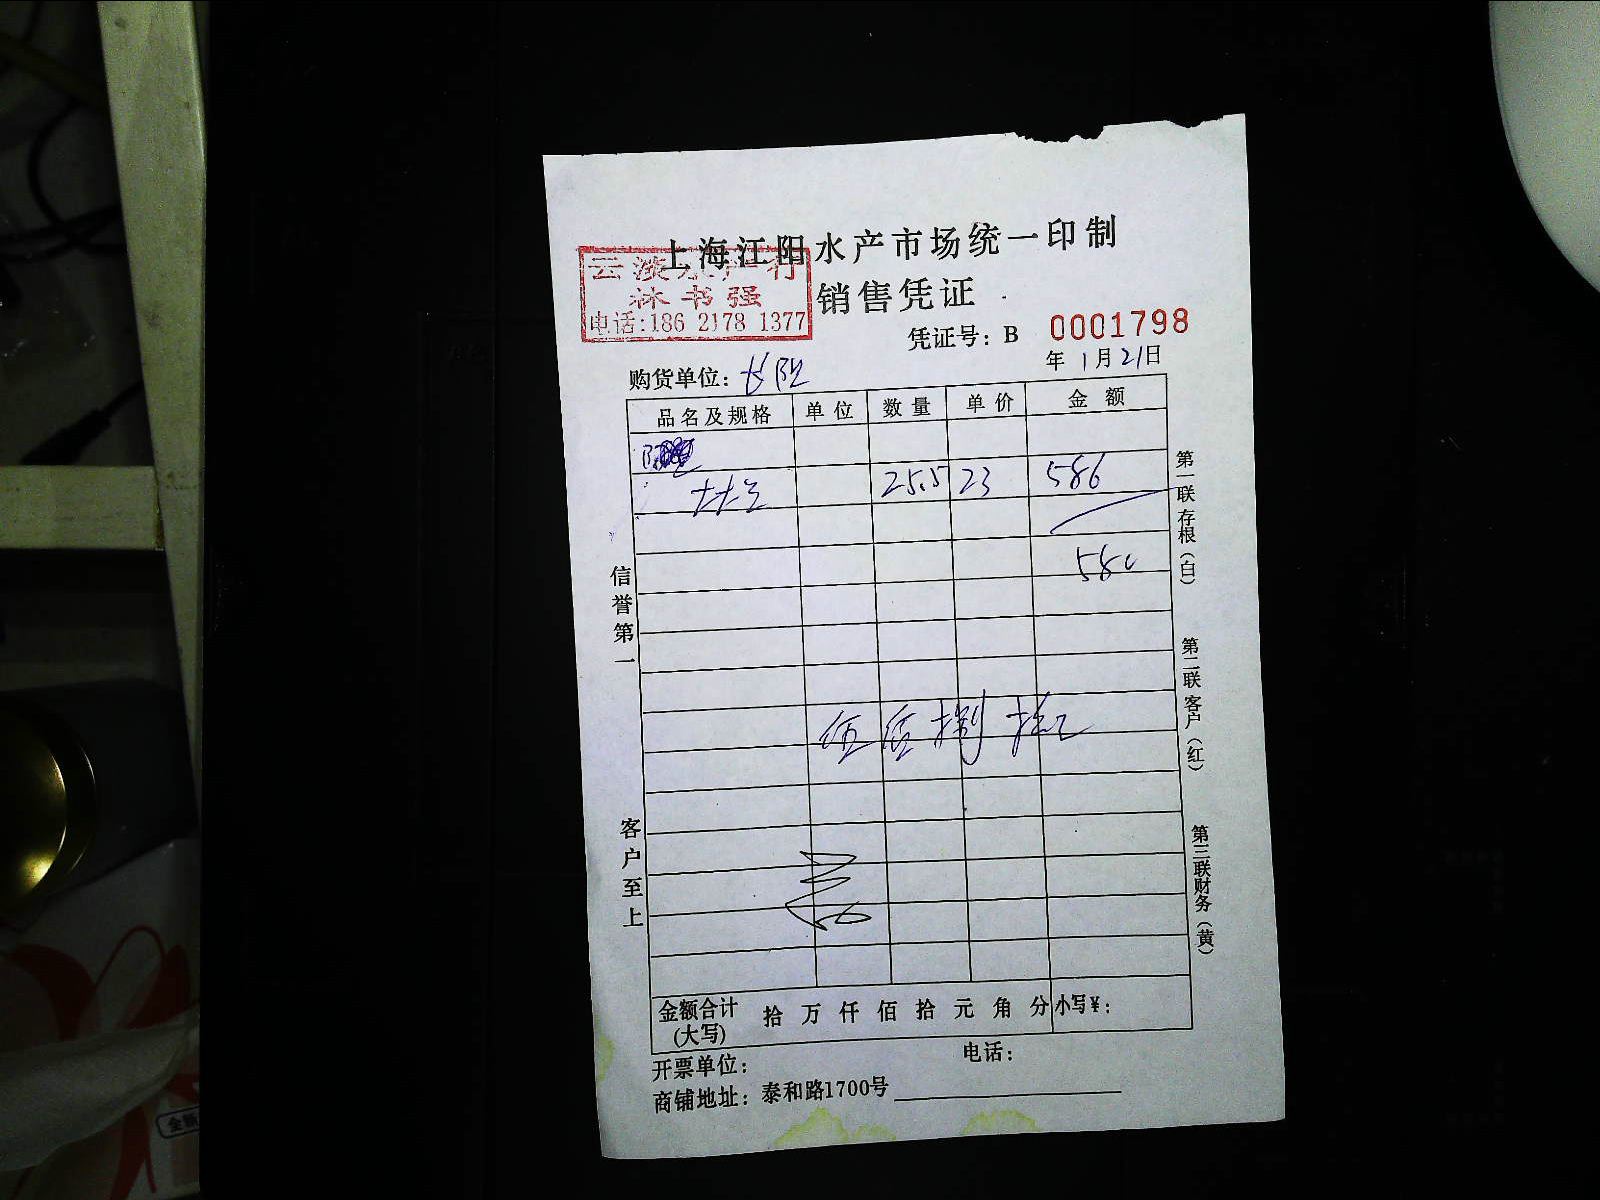 上海江阳水产市场统一印制
云淡水产行
林书强
电话:186 2178 1377
销售凭证
凭证号: B 0001798
年 1月21日
购货单位: 长阳
品名及规格 单位 数量 单价 金额
25.5 23 586
580
伍佰捌拾元
信誉第一
客户至上
第一联存根（白）
第二联客户（红）
第三联财务（黄）
金额合计(大写) 拾 万 仟 佰 拾 元 角 分 小写¥:
开票单位: 电话:
商铺地址: 泰和路1700号